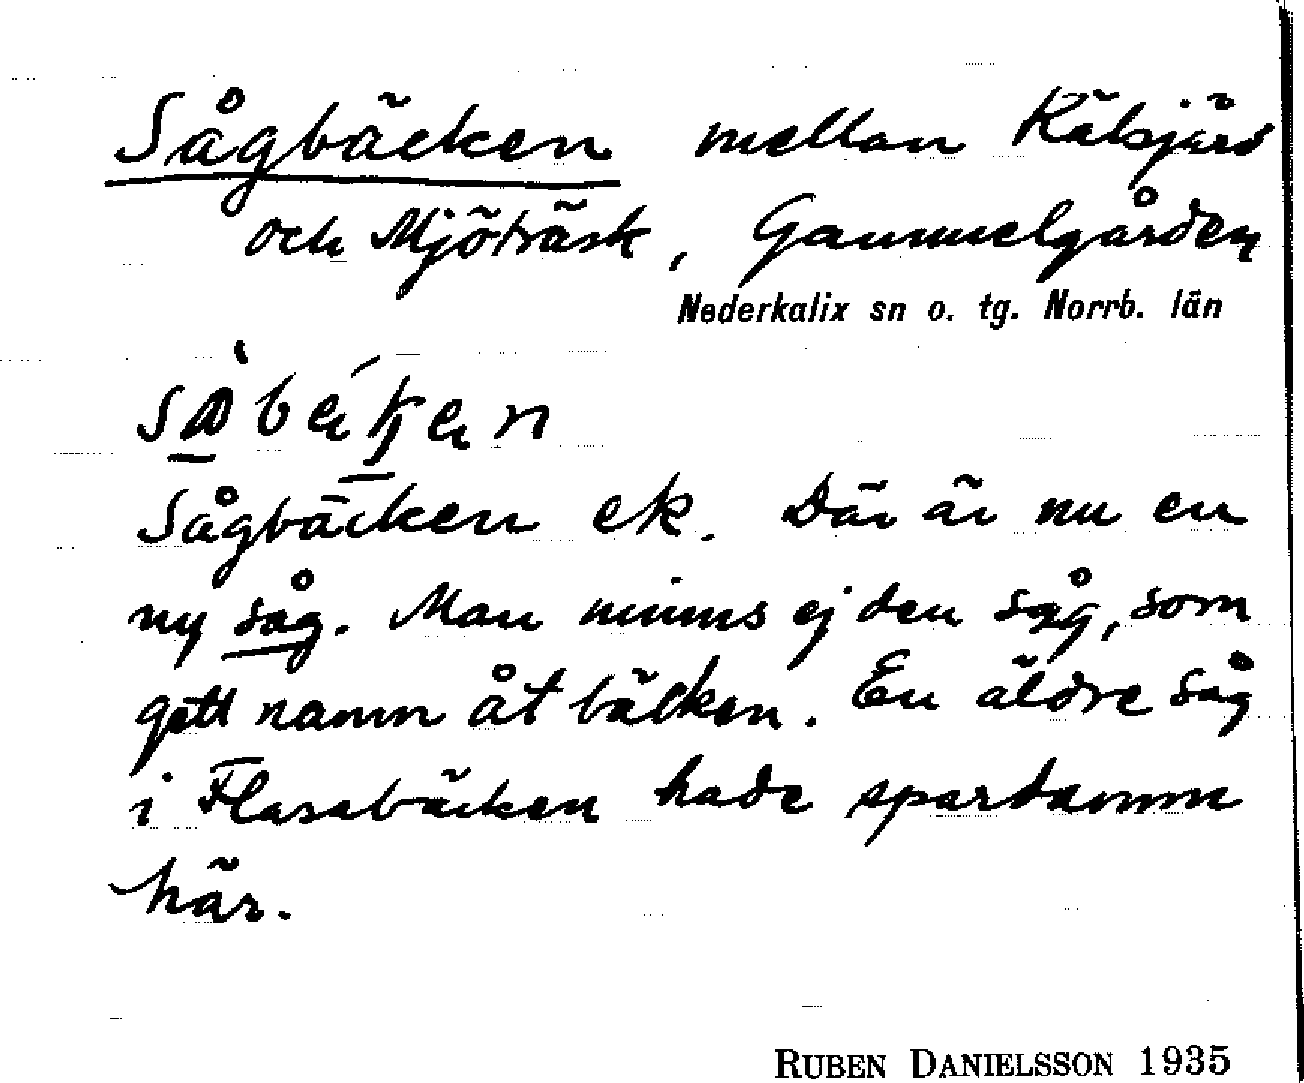 Sågbäcken mellan Kälsjärv
och Mjöträsk, Gammelgården
Nederkalix sn o. tg. Norrb. län
Sågbäcken ek. Där är nu en
ny såg. Man minns ej den såg, som
gett namn åt bäcken. En äldre såg
i Flasabäcken hade spardamm
här.
RUBEN DANIELSSON 1935